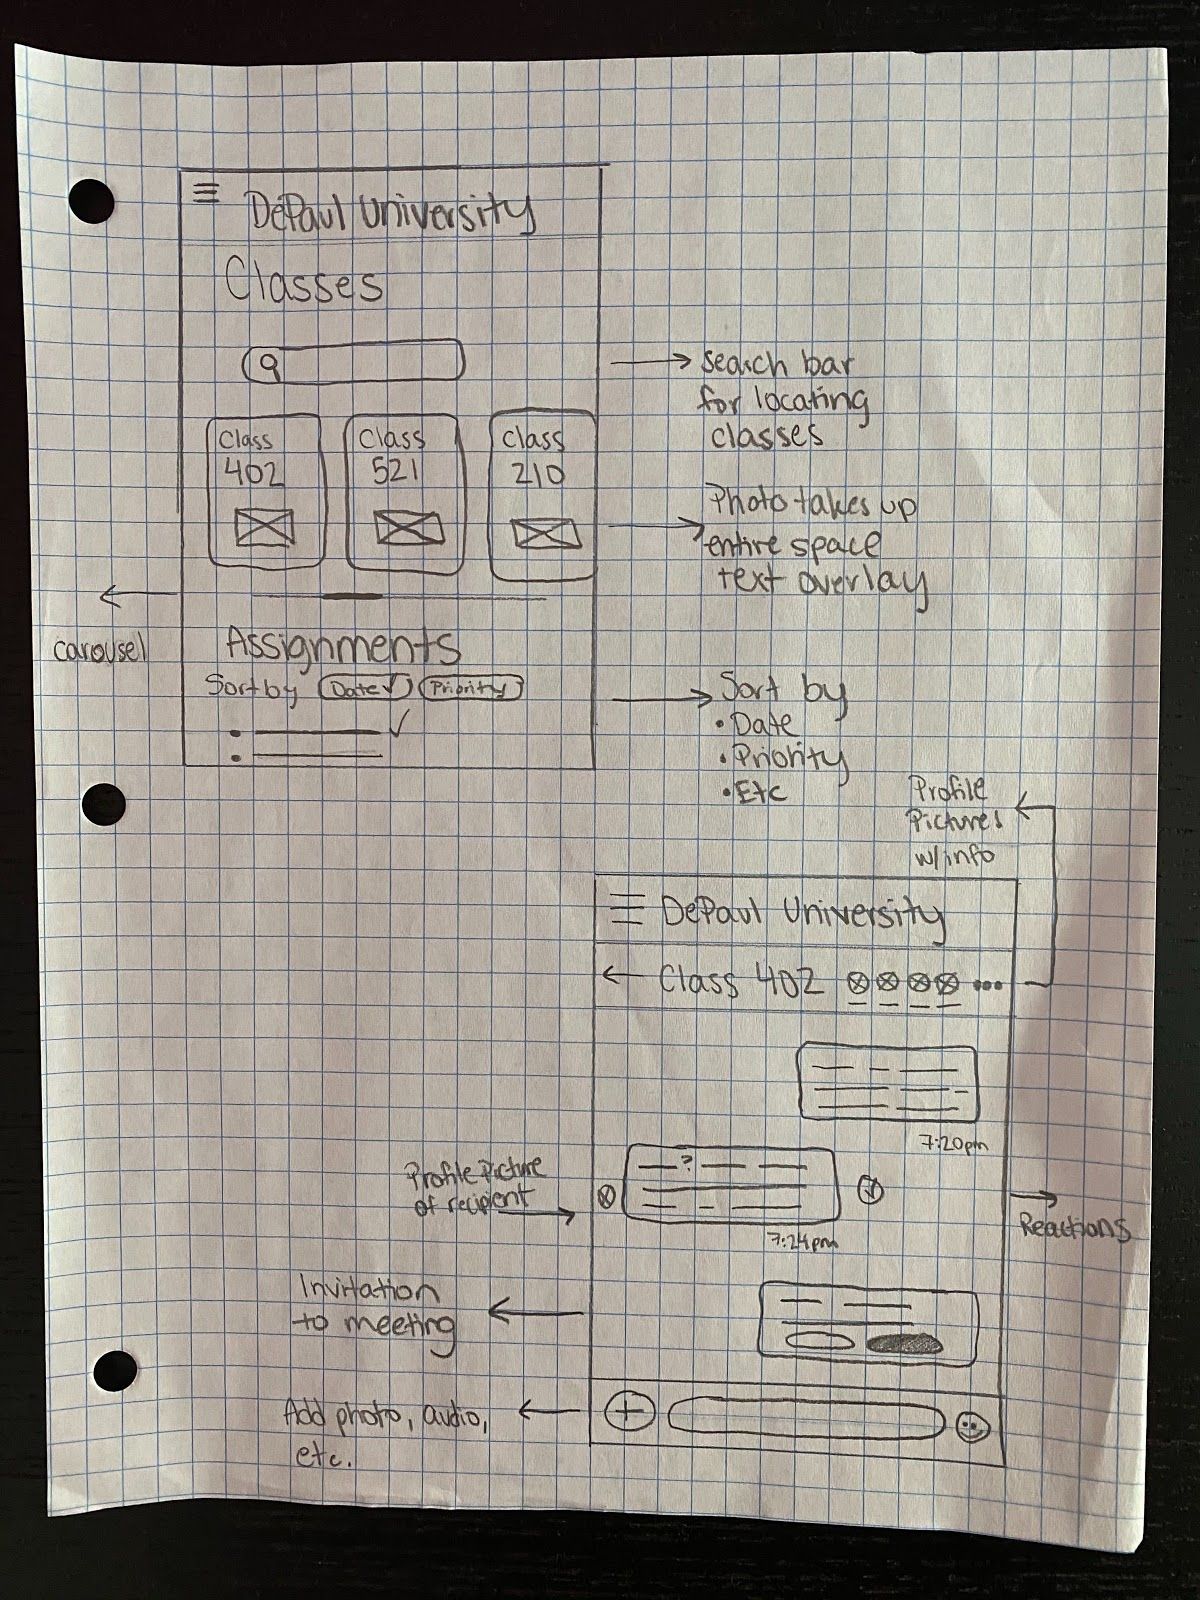 DePaul University
Classes
Class
402
Class
521
Class
210
search bar
for locating
classes
Photo takes up
entire space
text overlay
carousel
Assignments
Sort by Date✓ Priority
Sort by
• Date
• Priority
• Etc
Profile
Pictures
w/info
DePaul University
Class 402
7:20pm
Profile Picture
of recipient
?
7:24pm
Reactions
Invitation
to meeting
Add photo, audio,
etc.